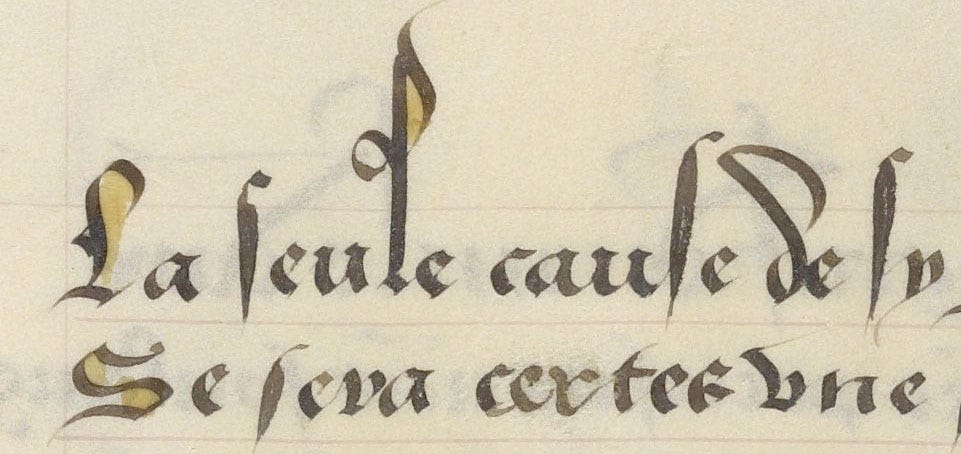 La seule cause de sy
Se sera certes vne